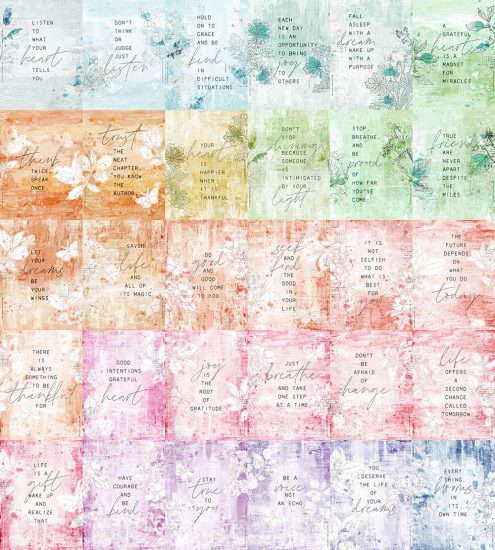 LISTEN
TO
WHAT
YOUR
heart
TELLS
YOU
DON'T
THINK
OR
JUDGE
JUST
listen
HOLD
ON TO
GRACE
AND BE
kind
IN
DIFFICULT
SITUATIONS
EACH
NEW DAY
IS AN
OPPORTUNITY
TO BRING
joy
TO
OTHERS
FALL
ASLEEP
WITH A
dream
WAKE UP
WITH A
PURPOSE
A
GRATEFUL
heart
IS A
MAGNET
FOR
MIRACLES
think
TWICE,
SPEAK
ONCE.
trust
THE
NEXT
CHAPTER.
YOU KNOW
THE
AUTHOR
YOUR
heart
IS
HAPPIER
WHEN
IT IS
THANKFUL
DON'T
STOP
shining
BECAUSE
SOMEONE
IS
INTIMIDATED
BY YOUR
light
STOP,
BREATHE.
AND
BE
proud
OF
HOW FAR
YOU'VE
COME
TRUE
friends
ARE
NEVER
APART
DESPITE
THE
MILES
LET
YOUR
dreams
BE
YOUR
WINGS
SAVOR
life
AND
ALL OF
ITS MAGIC
DO
good
AND
GOOD
WILL COME
TO YOU
seek
and find
THE
GOOD
IN YOUR
LIFE
IT IS
NOT
SELFISH
TO DO
WHAT IS
BEST
FOR
you
THE
FUTURE
DEPENDS
ON
WHAT
YOU DO
today
THERE
IS
ALWAYS
SOMETHING
TO BE
thankful
FOR
GOOD
INTENTIONS
GRATEFUL
heart
joy
IS THE
ROOT
OF
GRATITUDE
JUST
breathe
AND TAKE
ONE STEP
AT A TIME
DON'T
BE
AFRAID
OF
change
life
OFFERS
A
SECOND
CHANCE
CALLED
TOMORROW
LIFE
IS A
gift
WAKE UP
AND
REALIZE
THAT
HAVE
COURAGE
AND
BE
kind
STAY
true
TO
you
BE A
voice
NOT
AN ECHO
YOU
DESERVE
THE LIFE
OF
YOUR
dreams
EVERY
THING
blooms
IN
ITS
OWN TIME